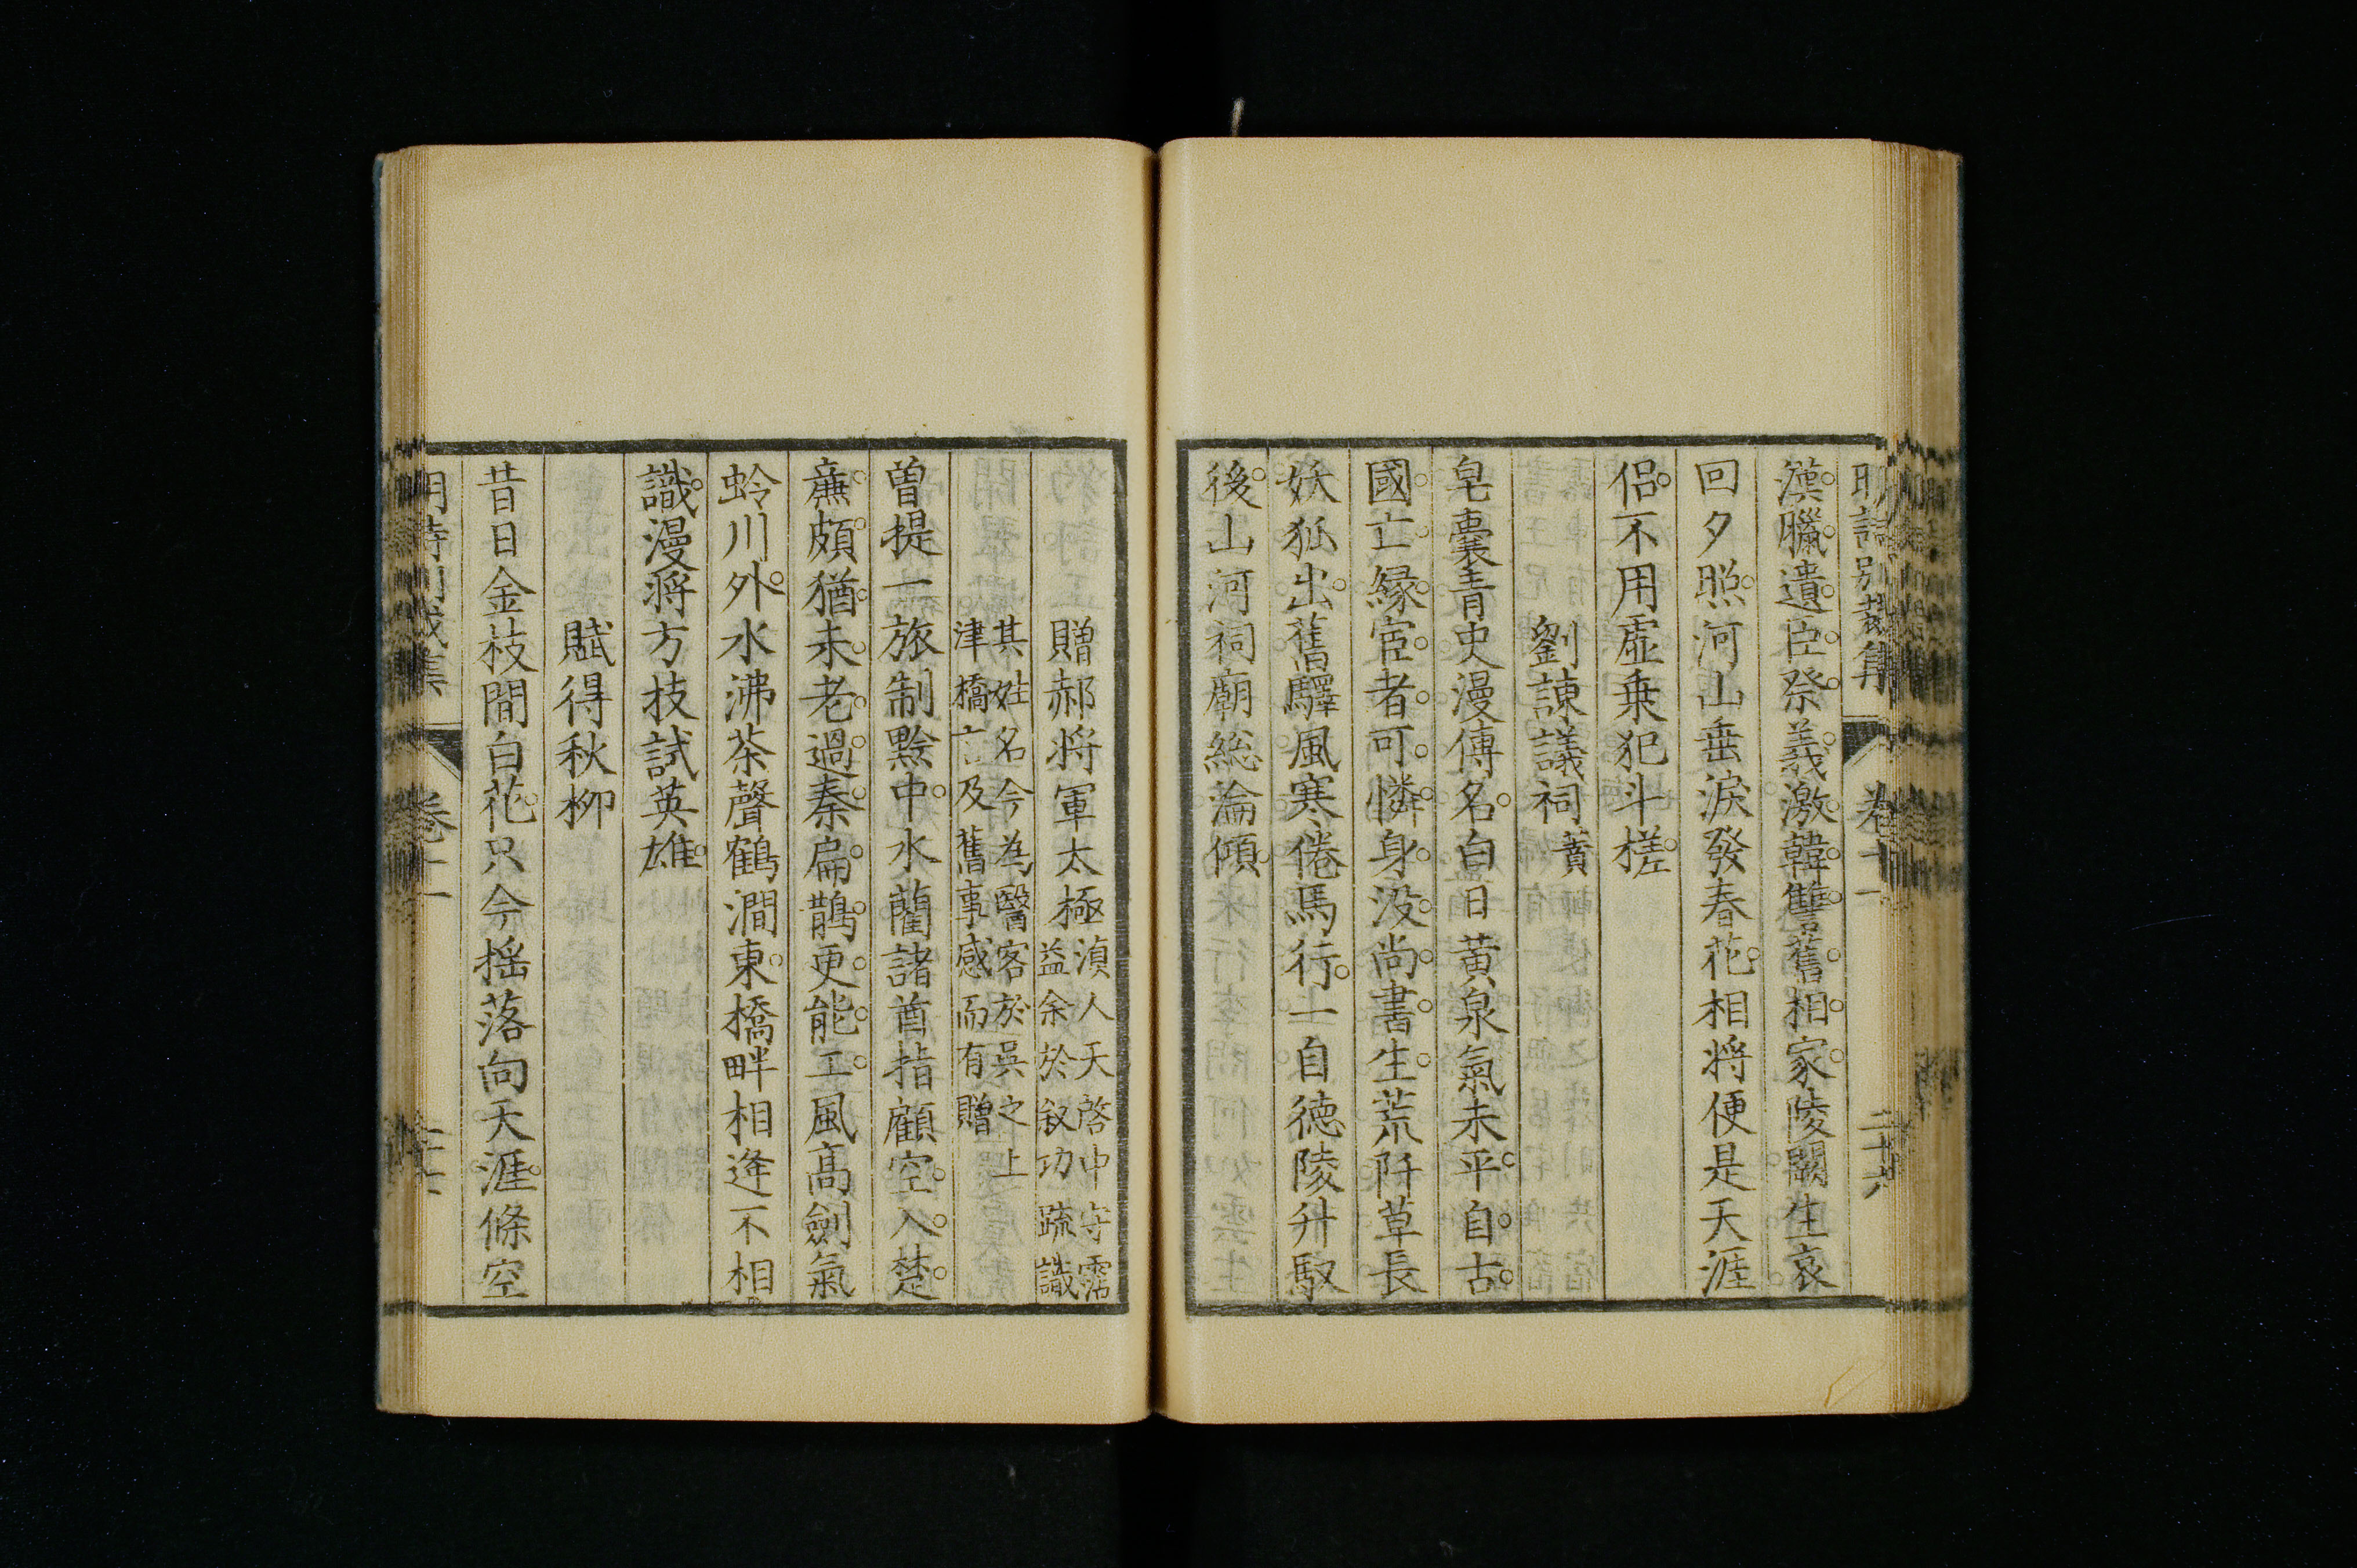 明詩別裁集 卷十一 二十六
漢臘遺臣祭義激韓讐舊相家陵闕生哀
回夕照河山垂淚發春花相將便是天涯
侶不用虛乗犯斗槎
劉諌議祠蕡
皂囊青史漫傳名白日黃泉氣未平自古
國亡緣宦者可憐身没尚書生荒阡草長
妖狐出舊驛風寒倦馬行一自德陵升馭
後山河祠廟総淪傾
贈郝將軍太極滇人天啓中守霑
益余於叙功疏識
其姓名今為醫客於吳之上
津橋言及舊事感而有贈
曽提一旅制黔中水藺諸酋指顧空入楚
廉頗猶未老過秦扁鵲更能工風高劍氣
蛉川外水沸茶聲鶴澗東橋畔相逢不相
識漫將方技試英雄
賦得秋柳
昔日金枝間白花只今揺落向天涯條空
明詩別裁集 卷十一